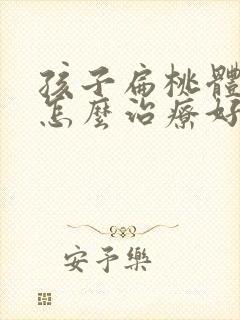 孩子扁桃體
怎麼治療好
安予樂